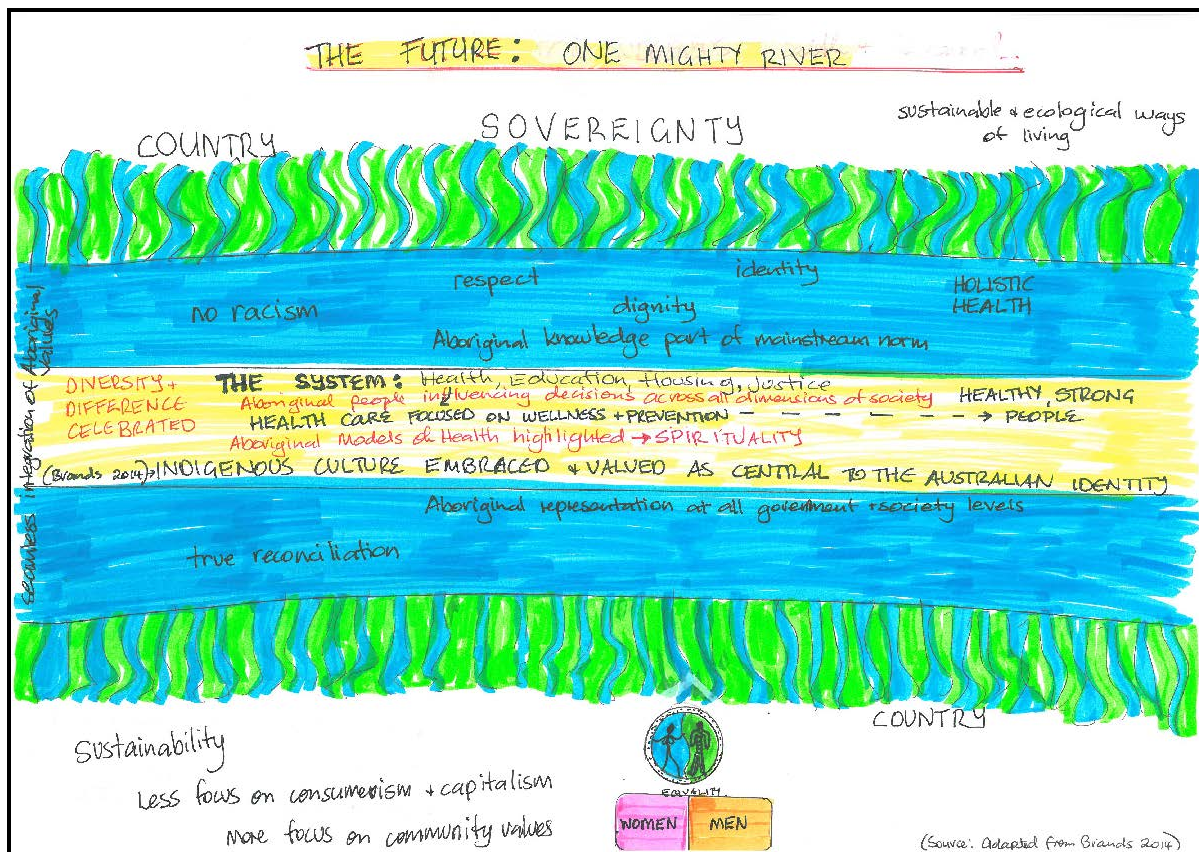 THE FUTURE: ONE MIGHTY RIVER
COUNTRY
SOVEREIGNTY
sustainable + ecological ways
of living
respect
identity
HOLISTIC
HEALTH
no racism
dignity
Aboriginal knowledge part of mainstream norm
seamless integration of Aboriginal
values
DIVERSITY +
DIFFERENCE
CELEBRATED
THE SYSTEM: Health, Education, Housing, Justice
Aboriginal people influencing decisions across all dimensions of society
HEALTH CARE FOCUSED ON WELLNESS + PREVENTION – – – – – – – → HEALTHY, STRONG
PEOPLE
Aboriginal Models of Health highlighted → SPIRITUALITY
(Brands 2014) → INDIGENOUS CULTURE EMBRACED + VALUED AS CENTRAL TO THE AUSTRALIAN IDENTITY
Aboriginal representation at all goverment + society levels
true reconciliation
COUNTRY
Sustainability
Less focus on consumerism + capitalism
More focus on community values
EQUALITY
WOMEN MEN
(Source: Adapted from Brands 2014)